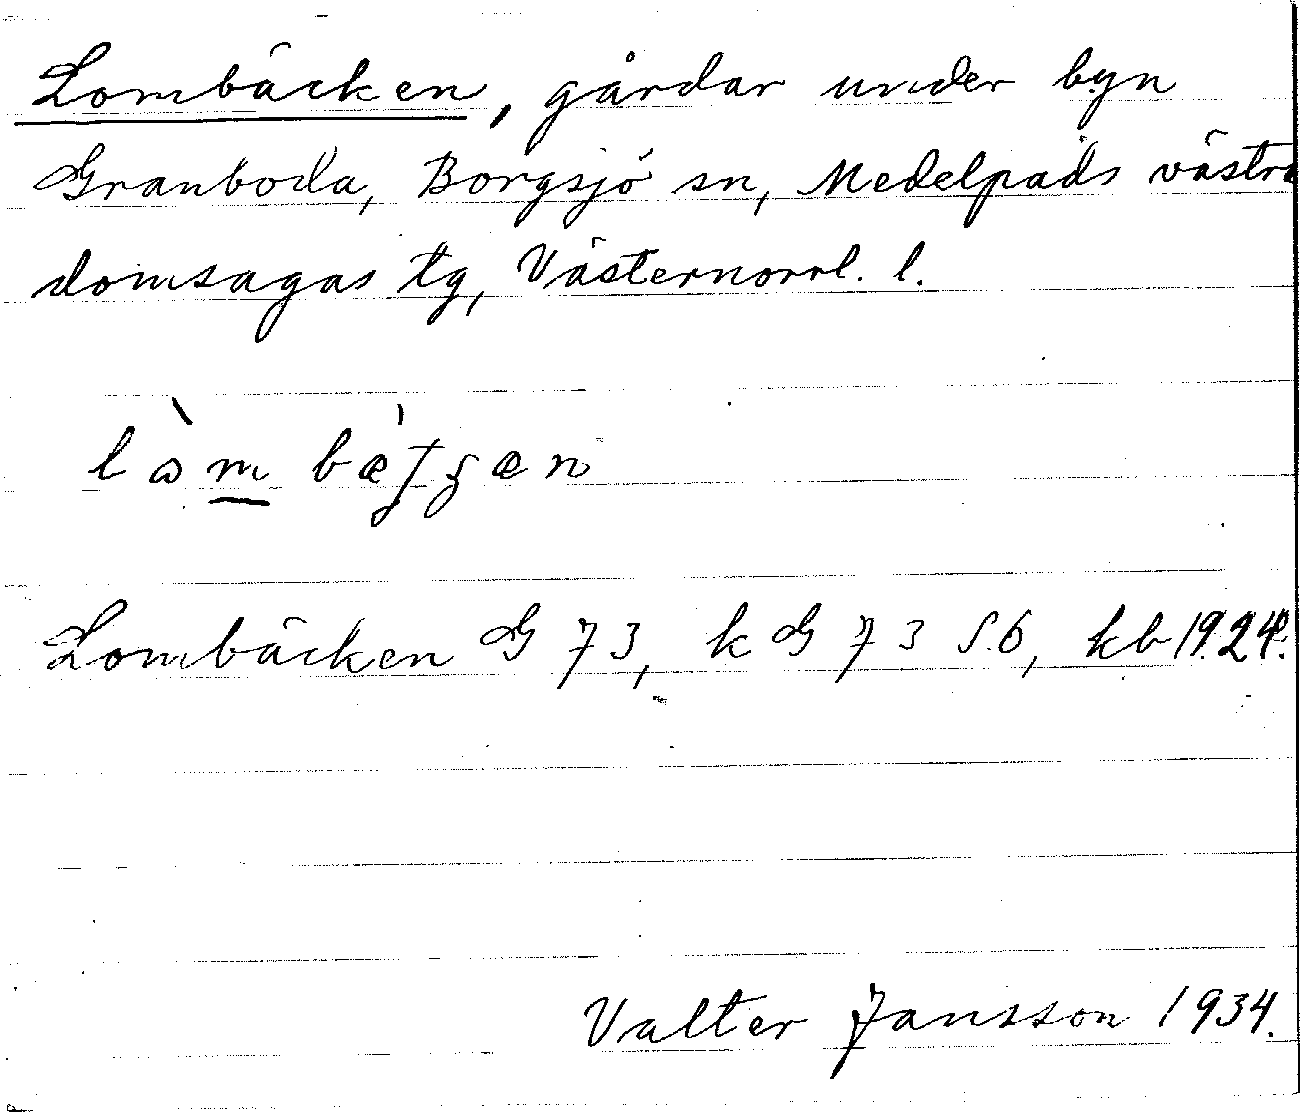 Lombäcken, gårdar under byn
Granboda, Borgsjö sn, Medelpads västra
domsagas tg, Västernorrl. l.
Lombäcken G 73, k G 73 S.6, kb 1924.
Valter Jansson 1934.